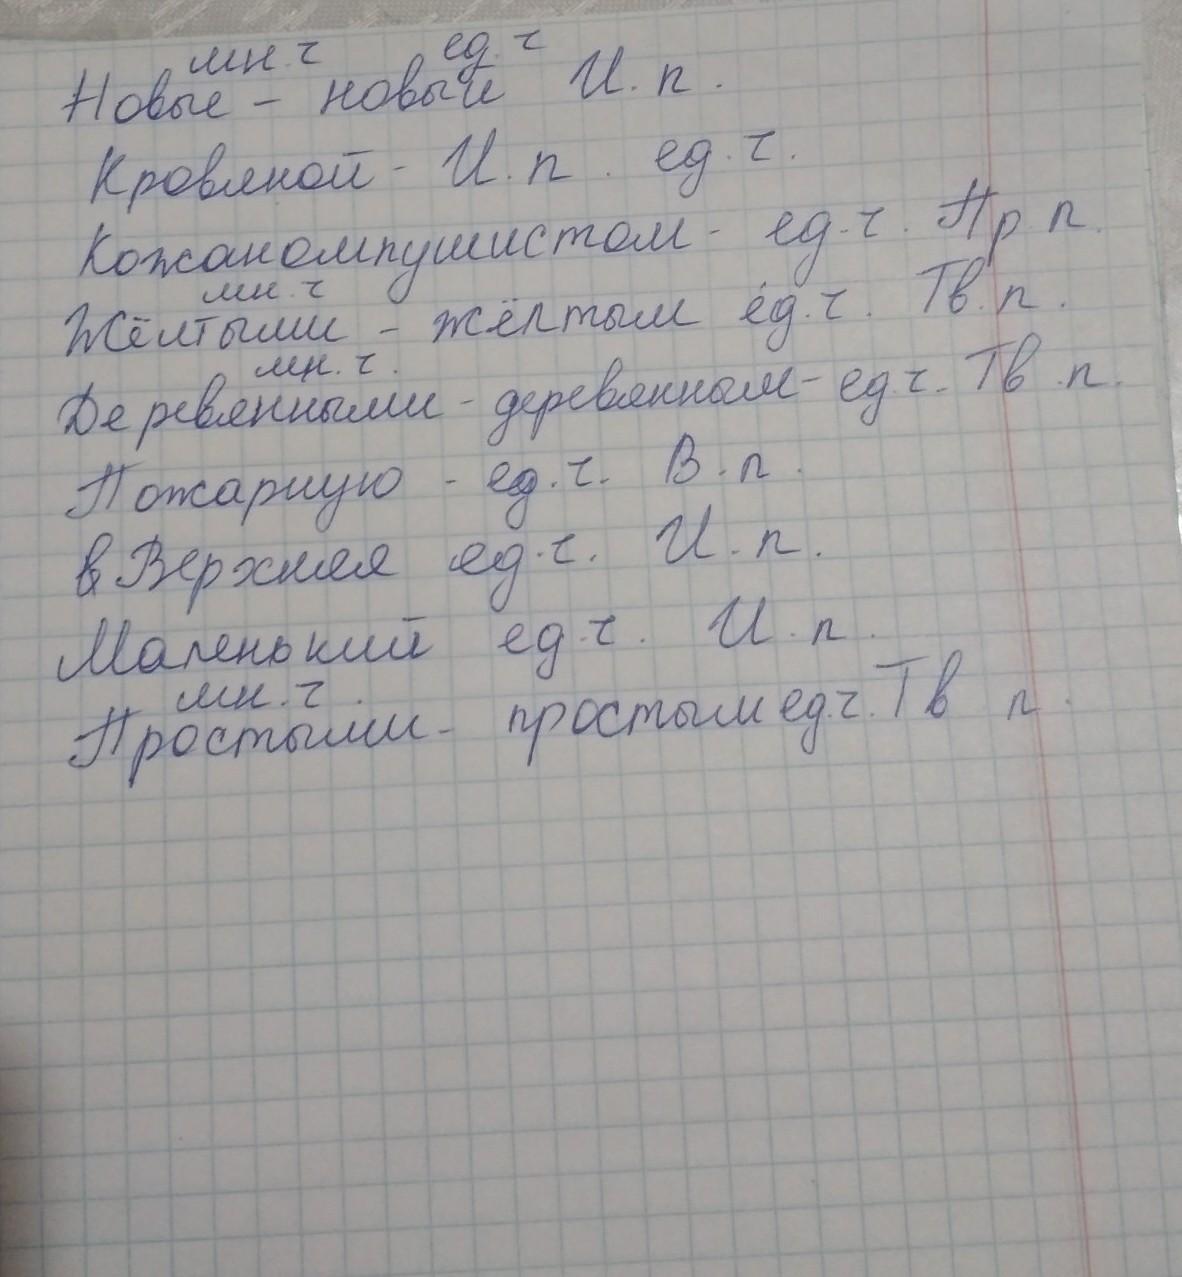 мн.ч ед.ч
Новые - новый И.п.
Кровяной - И.п. ед.ч.
Кожаномпушистом - ед.ч. Пр.п.
мн.ч
Жёлтыми - жёлтым ед.ч. Тв.п.
мн.ч.
Деревянными - деревянным - ед.ч. Тв.п.
Пожарную - ед.ч. В.п.
в Верхняя ед.ч. И.п.
Маленький ед.ч. И.п.
мн.ч.
Простыми - простым ед.ч. Тв п.